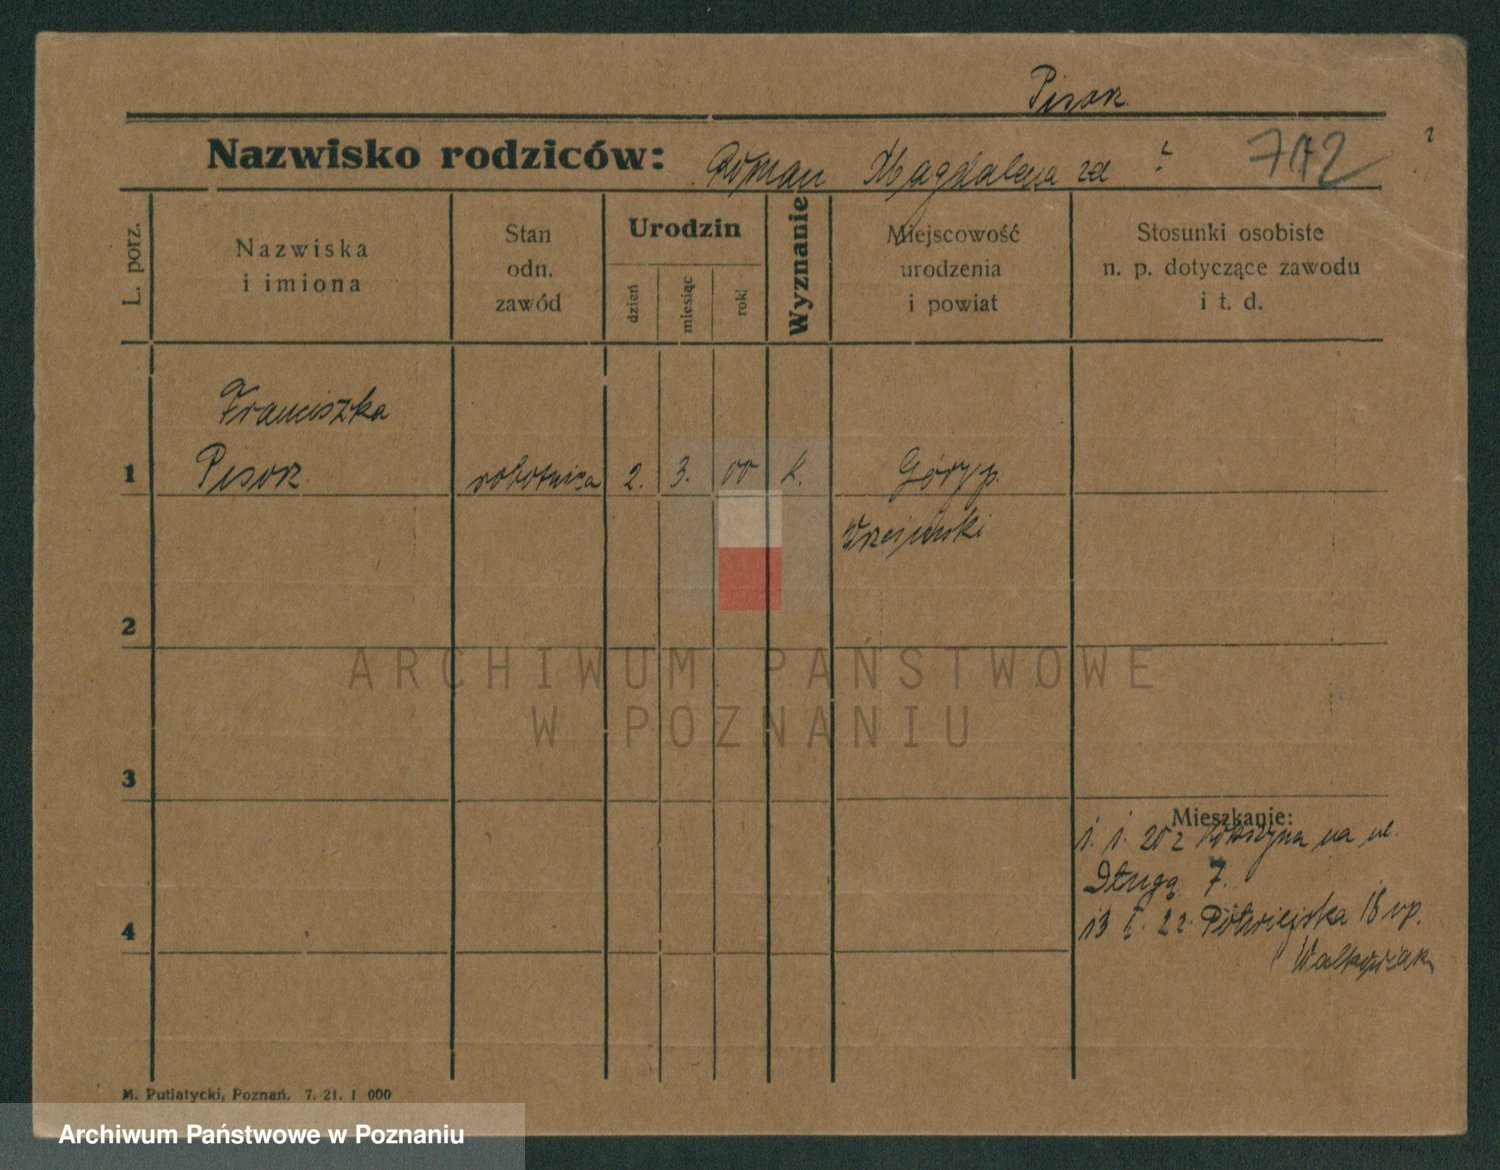 Pisorz.
Nazwisko rodziców: Roman Magdalena zd ? 7112
?
L. porz.
Nazwiska
i imiona
Stan
odn.
zawód
Urodzin
dzień
miesiąc
rok
Wyznanie
Miejscowość
urodzenia
i powiat
Stosunki osobiste
n. p. dotyczące zawodu
i t. d.
Franciszka
1 Pisorz. robotnica 2. 3. 00 k. Góry p.
Wrzesiński
2
ARCHIWUM PAŃSTWOWE
W POZNANIU
3
Mieszkanie:
1. 1. 20 z na ul.
Długą 7.
4 13 I. 22. Półwiejska 18 up.
Walkowiak
M. Putiatycki, Poznań. 7. 21. 1 000
Archiwum Państwowe w Poznaniu